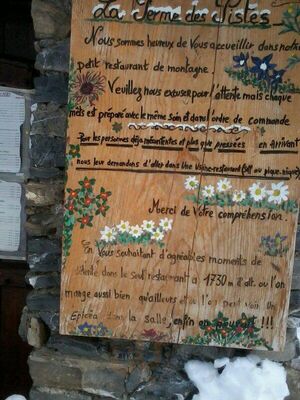 La Ferme des Pistes
Nous sommes heureux de Vous accueillir dans notre
petit restaurant de montagne.
Veuillez nous excuser pour l'attente mais chaque
mets est préparé avec le même Soin et dans l'ordre de commande
Pour les personnes déjà mécontentes et plus que pressées en arrivant
nous leur demandons d'aller dans Une Usine-restaurant (Self ou pique-nique)
Merci de Votre compréhension.
En Vous souhaitant d'agréables moments de
détente dans le seul restaurant à 1730 m d'alt. ou l'on
mange aussi bien qu'ailleurs et ou l'on peut voir Un
Epicéa dans la salle, enfin on peut !!!